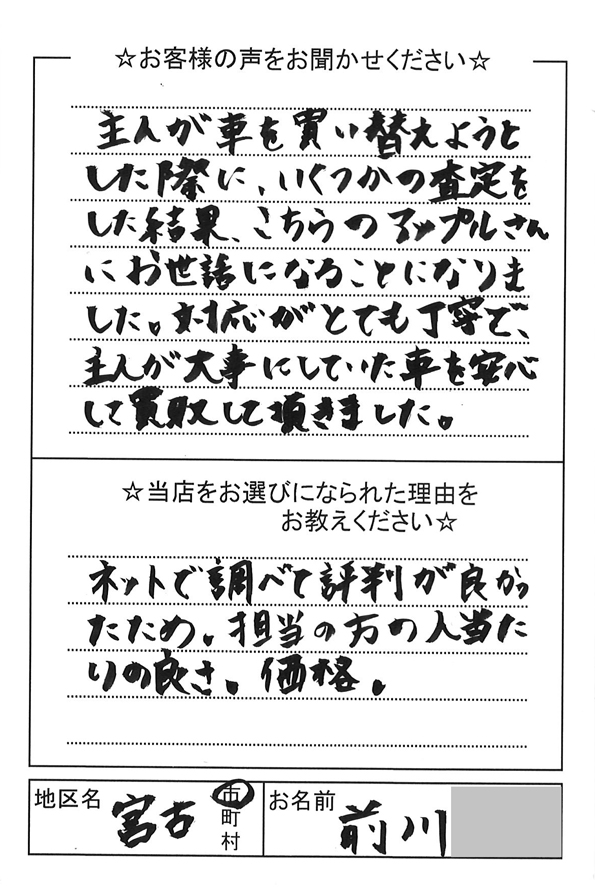 ☆お客様の声をお聞かせください☆
主人が車を買い替えようと
した際に、いくつかの査定を
した結果、こちらのアップルさん
にお世話になることになりま
した。対応がとても丁寧で、
主人が大事にしていた車を安心
して買取して頂きました。
☆当店をお選びになられた理由を
お教えください☆
ネットで調べて評判が良かっ
たため。担当の方の人当た
りの良さ。価格。
地区名 宮古 市町村 お名前 前川